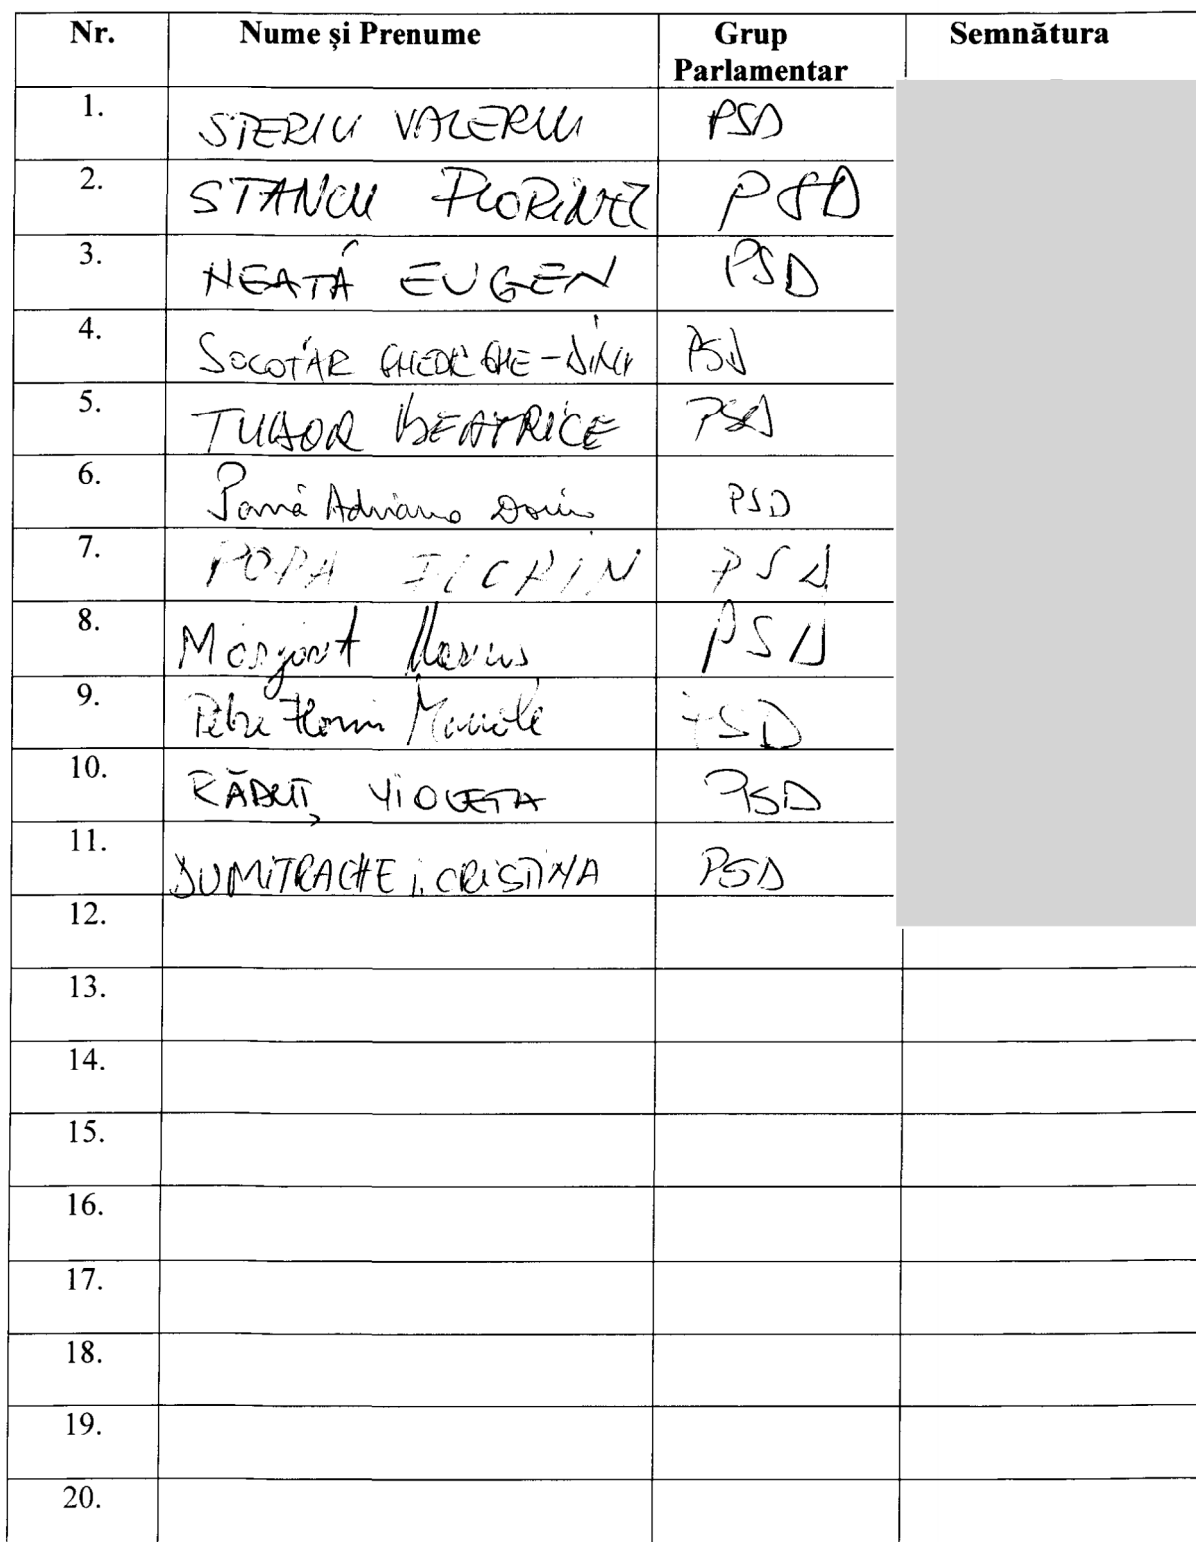 Nr. Nume și Prenume Grup Parlamentar Semnătura
1. STERIU VALERIU PSD
2. STANCU FLORINEL PSD
3. NEATĂ EUGEN PSD
4. SOCOTAR GHEORGHE-DINU PSD
5. TUDOR BEATRICE PSD
6. Pană Adriana Doina PSD
7. POPA PSD
8. Marius PSD
9. Petre Florin Manole PSD
10. RĂDUȚ VIOLETA PSD
11. DUMITRACHE I. CRISTINA PSD
12.
13.
14.
15.
16.
17.
18.
19.
20.